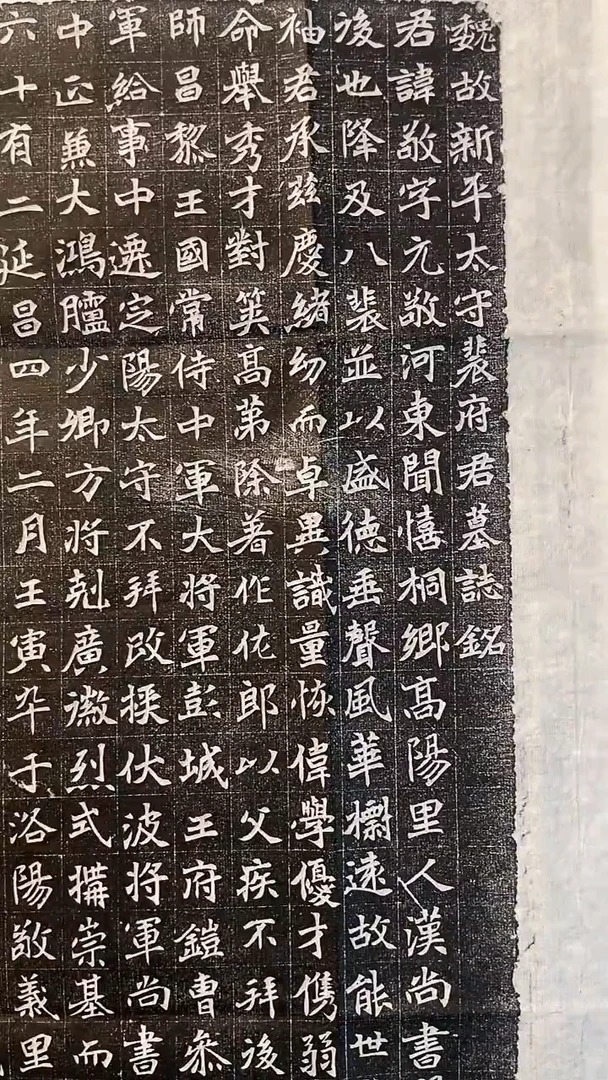 魏故新平太守裴府君墓誌銘
君諱敬字元敬河東聞憘桐鄉高陽里人漢尚書
後也降及八裴並以盛德垂聲風華摽遠故能世
袖君承茲慶緒幼而卓異識量恢偉學優才儁弱
命舉秀才對筞高第除著作佐郎以父疾不拜後
師昌黎王國常侍中軍大將軍彭城王府鎧曹叅
軍給事中遷定陽太守不拜改授伏波將軍尚書
中正兼大鴻臚少卿方將剋廣徽烈式搆崇基而
六十有二延昌四年二月壬寅卒于洛陽敬義里